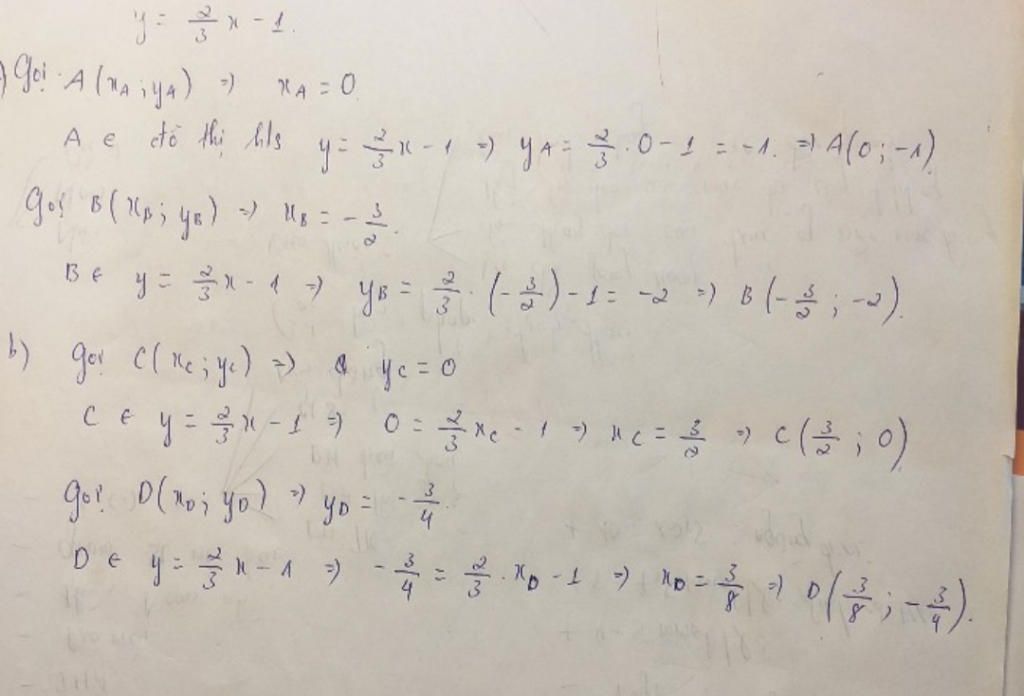 y = 2/3 x - 1.
) Gọi A(xA; yA) => xA = 0
A ∈ đồ thị h/s y = 2/3 x - 1 => yA = 2/3 . 0 - 1 = -1. => A(0; -1)
Gọi B(xB; yB) => xB = - 3/2.
B ∈ y = 2/3 x - 1 => yB = 2/3 . (- 3/2) - 1 = -2 => B(- 3/2; -2).
b) Gọi C(xC; yC) => yC = 0
C ∈ y = 2/3 x - 1 => 0 = 2/3 xC - 1 => xC = 3/2 => C(3/2; 0)
Gọi D(xD; yD) => yD = - 3/4.
D ∈ y = 2/3 x - 1 => - 3/4 = 2/3 . xD - 1 => xD = 3/8 => D(3/8; - 3/4).